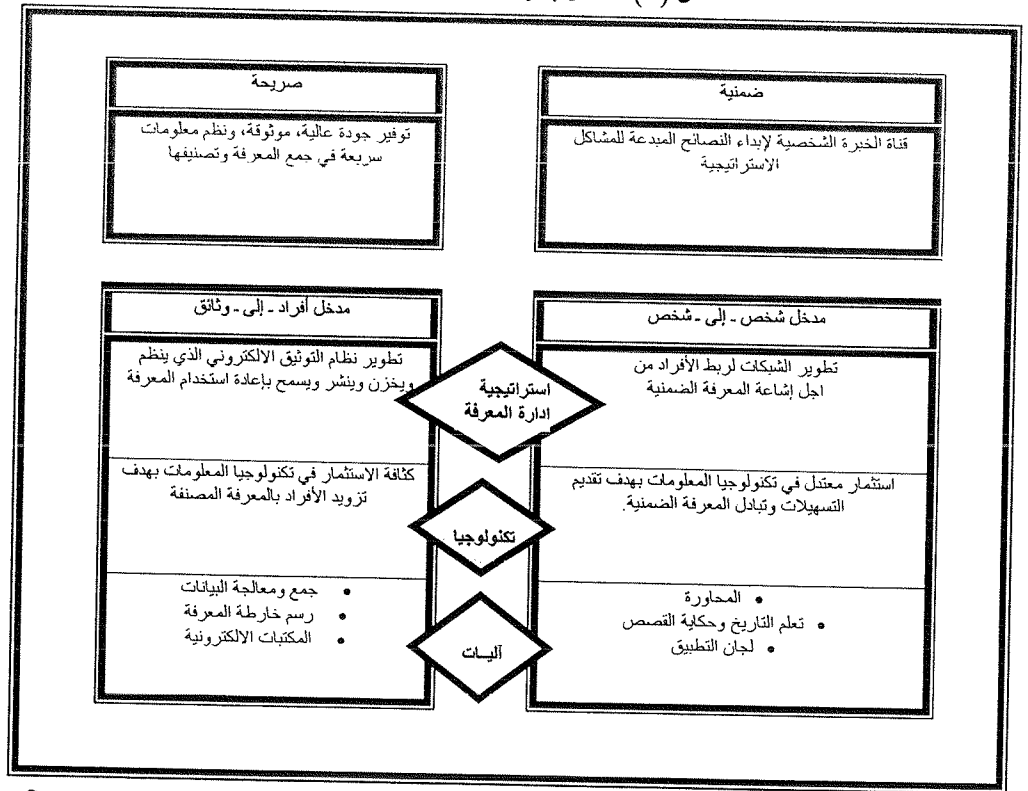 ضمنية
قناة الخبرة الشخصية لإبداء النصائح المبدعة للمشاكل
الاستراتيجية
صريحة
توفير جودة عالية، موثوقة، ونظم معلومات
سريعة في جمع المعرفة وتصنيفها
مدخل شخص - إلى - شخص
تطوير الشبكات لربط الأفراد من
اجل إشاعة المعرفة الضمنية
استثمار معتدل في تكنولوجيا المعلومات بهدف تقديم
التسهيلات وتبادل المعرفة الضمنية.
• المحاورة
• تعلم التاريخ وحكاية القصص
• لجان التطبيق
استراتيجية
ادارة المعرفة
تكنولوجيا
آليــات
مدخل أفراد - إلى - وثائق
تطوير نظام التوثيق الالكتروني الذي ينظم
ويخزن وينشر ويسمح بإعادة استخدام المعرفة
كثافة الاستثمار في تكنولوجيا المعلومات بهدف
تزويد الأفراد بالمعرفة المصنفة
• جمع ومعالجة البيانات
• رسم خارطة المعرفة
• المكتبات الالكترونية